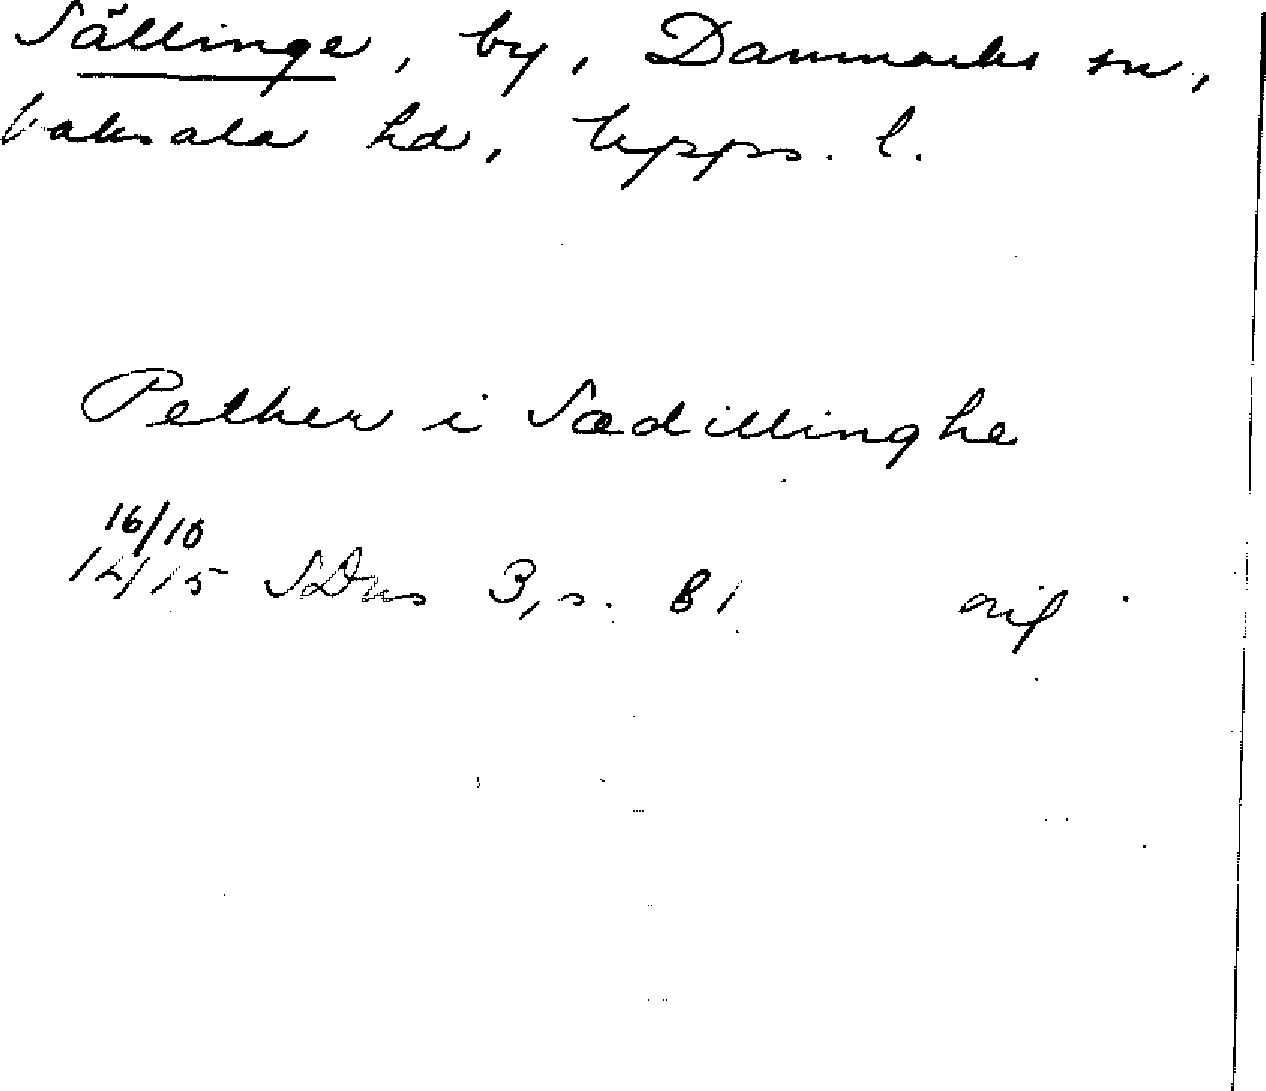 Sällinge, by, Danmarks sn,
Vaksala hd, Upps. l.
Pether i Sædillinghe
16/10
1415 SDns 3, s. 81 orig